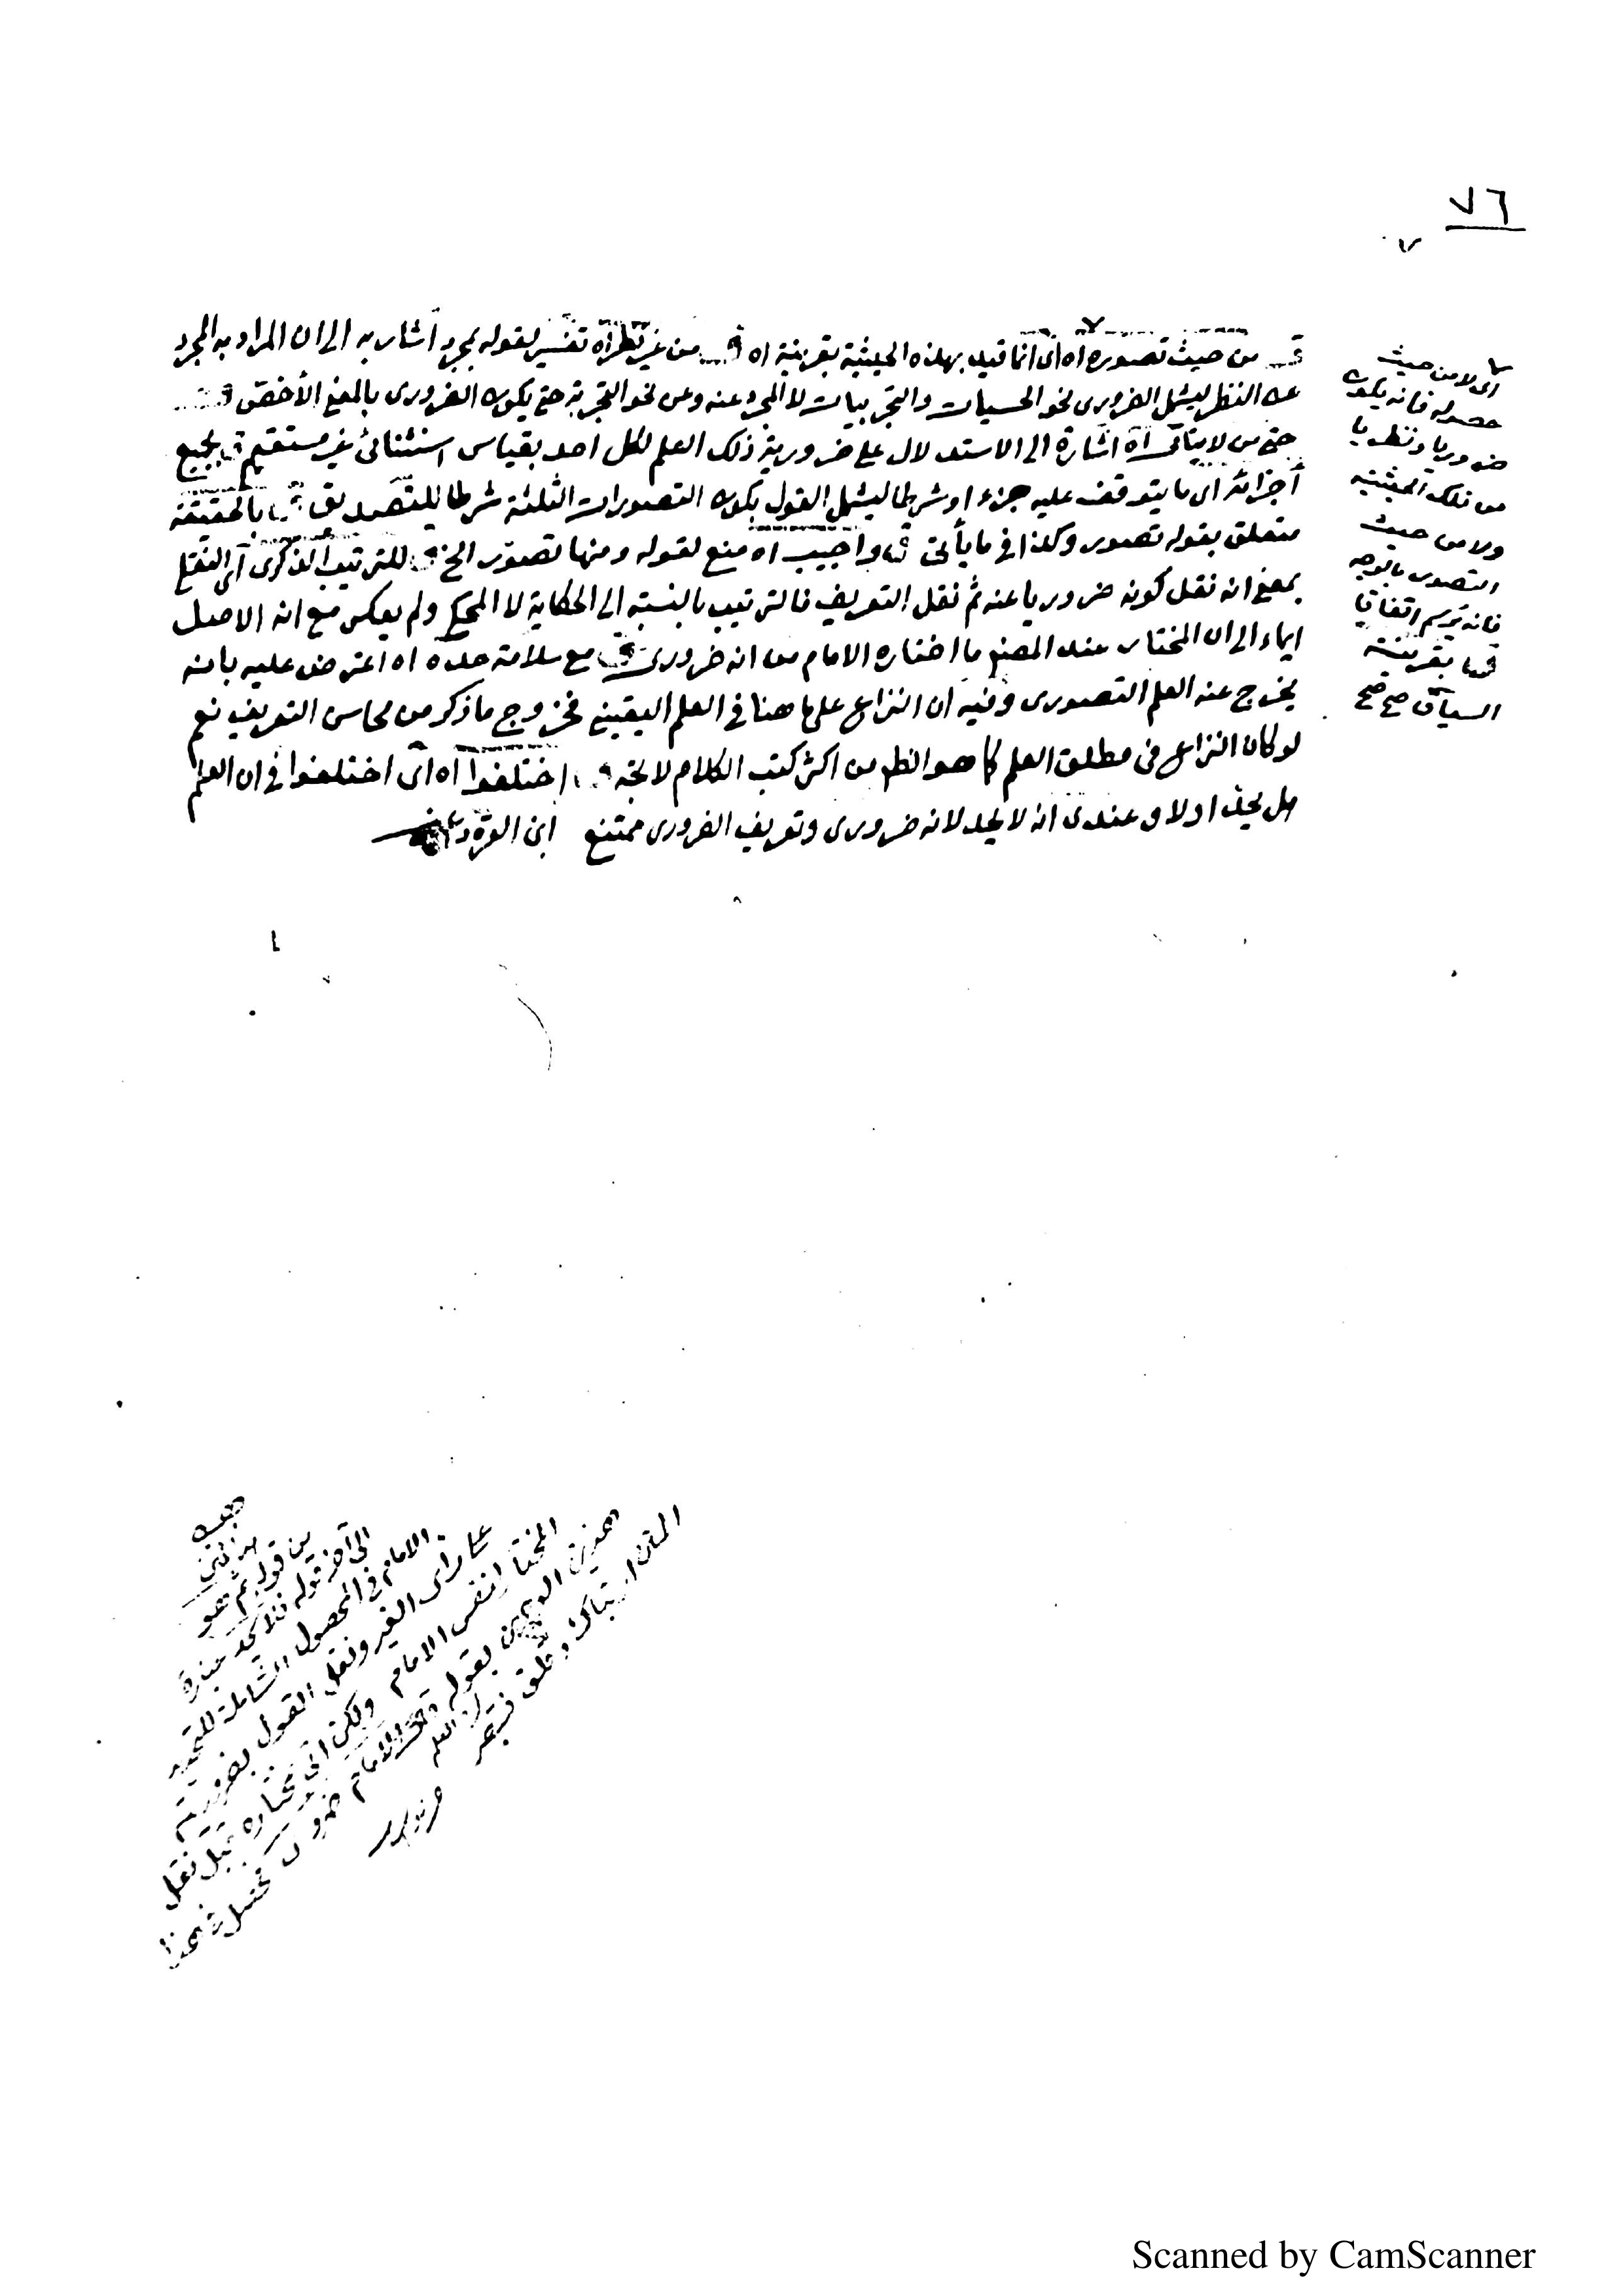 ٧٦
من حيث تصوره اه اى انما قيد بهذه الحيثية بقرينة اه ق من غير نظر اه تفسير لقوله بمجرد اشار به الى ان المراد به المجرد
عن النظر ليشمل الضرورى نحو الحسيات والتجربيات لا المجرد عنه وعن نحو التجربة حتى يكون الضرورى بالمعنى الأخص ق
حتى من لا يتأتى اه اشارة الى الاستدلال على ضرورية ذلك العلم لكل احد بقياس استثنائى غير مستقيم ق بجميع
أجزائه اى ما يتوقف عليه جزء او شرطا ليشمل القول بكون التصورات الثلثة شرطا للتصديق ق بالحقيقة
متعلق بقوله تصور وكذا فى ما يأتى ق واجيب اه منع لقوله ومنها تصور الخ ق للترتيب الذكرى اى النقلى
بمعنى انه نقل كونه ضروريا عنه ثم نقل التعريف فالترتيب بالنسبة الى الحكاية لا المحكى ولم يعكس مع انه الاصل
ايماء الى ان المختار عند المصنف ما اختاره الامام من انه ضرورى ق مع سلامة حده اه اعترض عليه بانه
يخرج عنه العلم التصورى وفيه ان النزاع على ما هنا فى العلم اليقينى فخروج ما ذكر من محاسن التعريف نعم
لو كان النزاع فى مطلق العلم كما هو الظ من اكثر كتب الكلام لاتجه ق اختلفوا اه اى اختلفوا فى ان العلم
هل يحد اولا وعندى انه لا يحد لانه ضرورى وتعريف الضرورى ممتنع ابن القره داغى
اى لا من حيث
حصوله فانه يكون
ضروريا ونظريا
من تلك الحيثية
ولا من حيث
التصور بالوجه
فانه يرسم اتفاقا
ق بقرينة
السياق صح صح
من قوله ثم هو
الى آخر قوله فلا يحد
الامام فى المحصول الشاملة للتحديد
على راى الغير ونقل القول بضروريته
المختار نفس الامام ولكن قبل نقل
هذين بقوله الامام